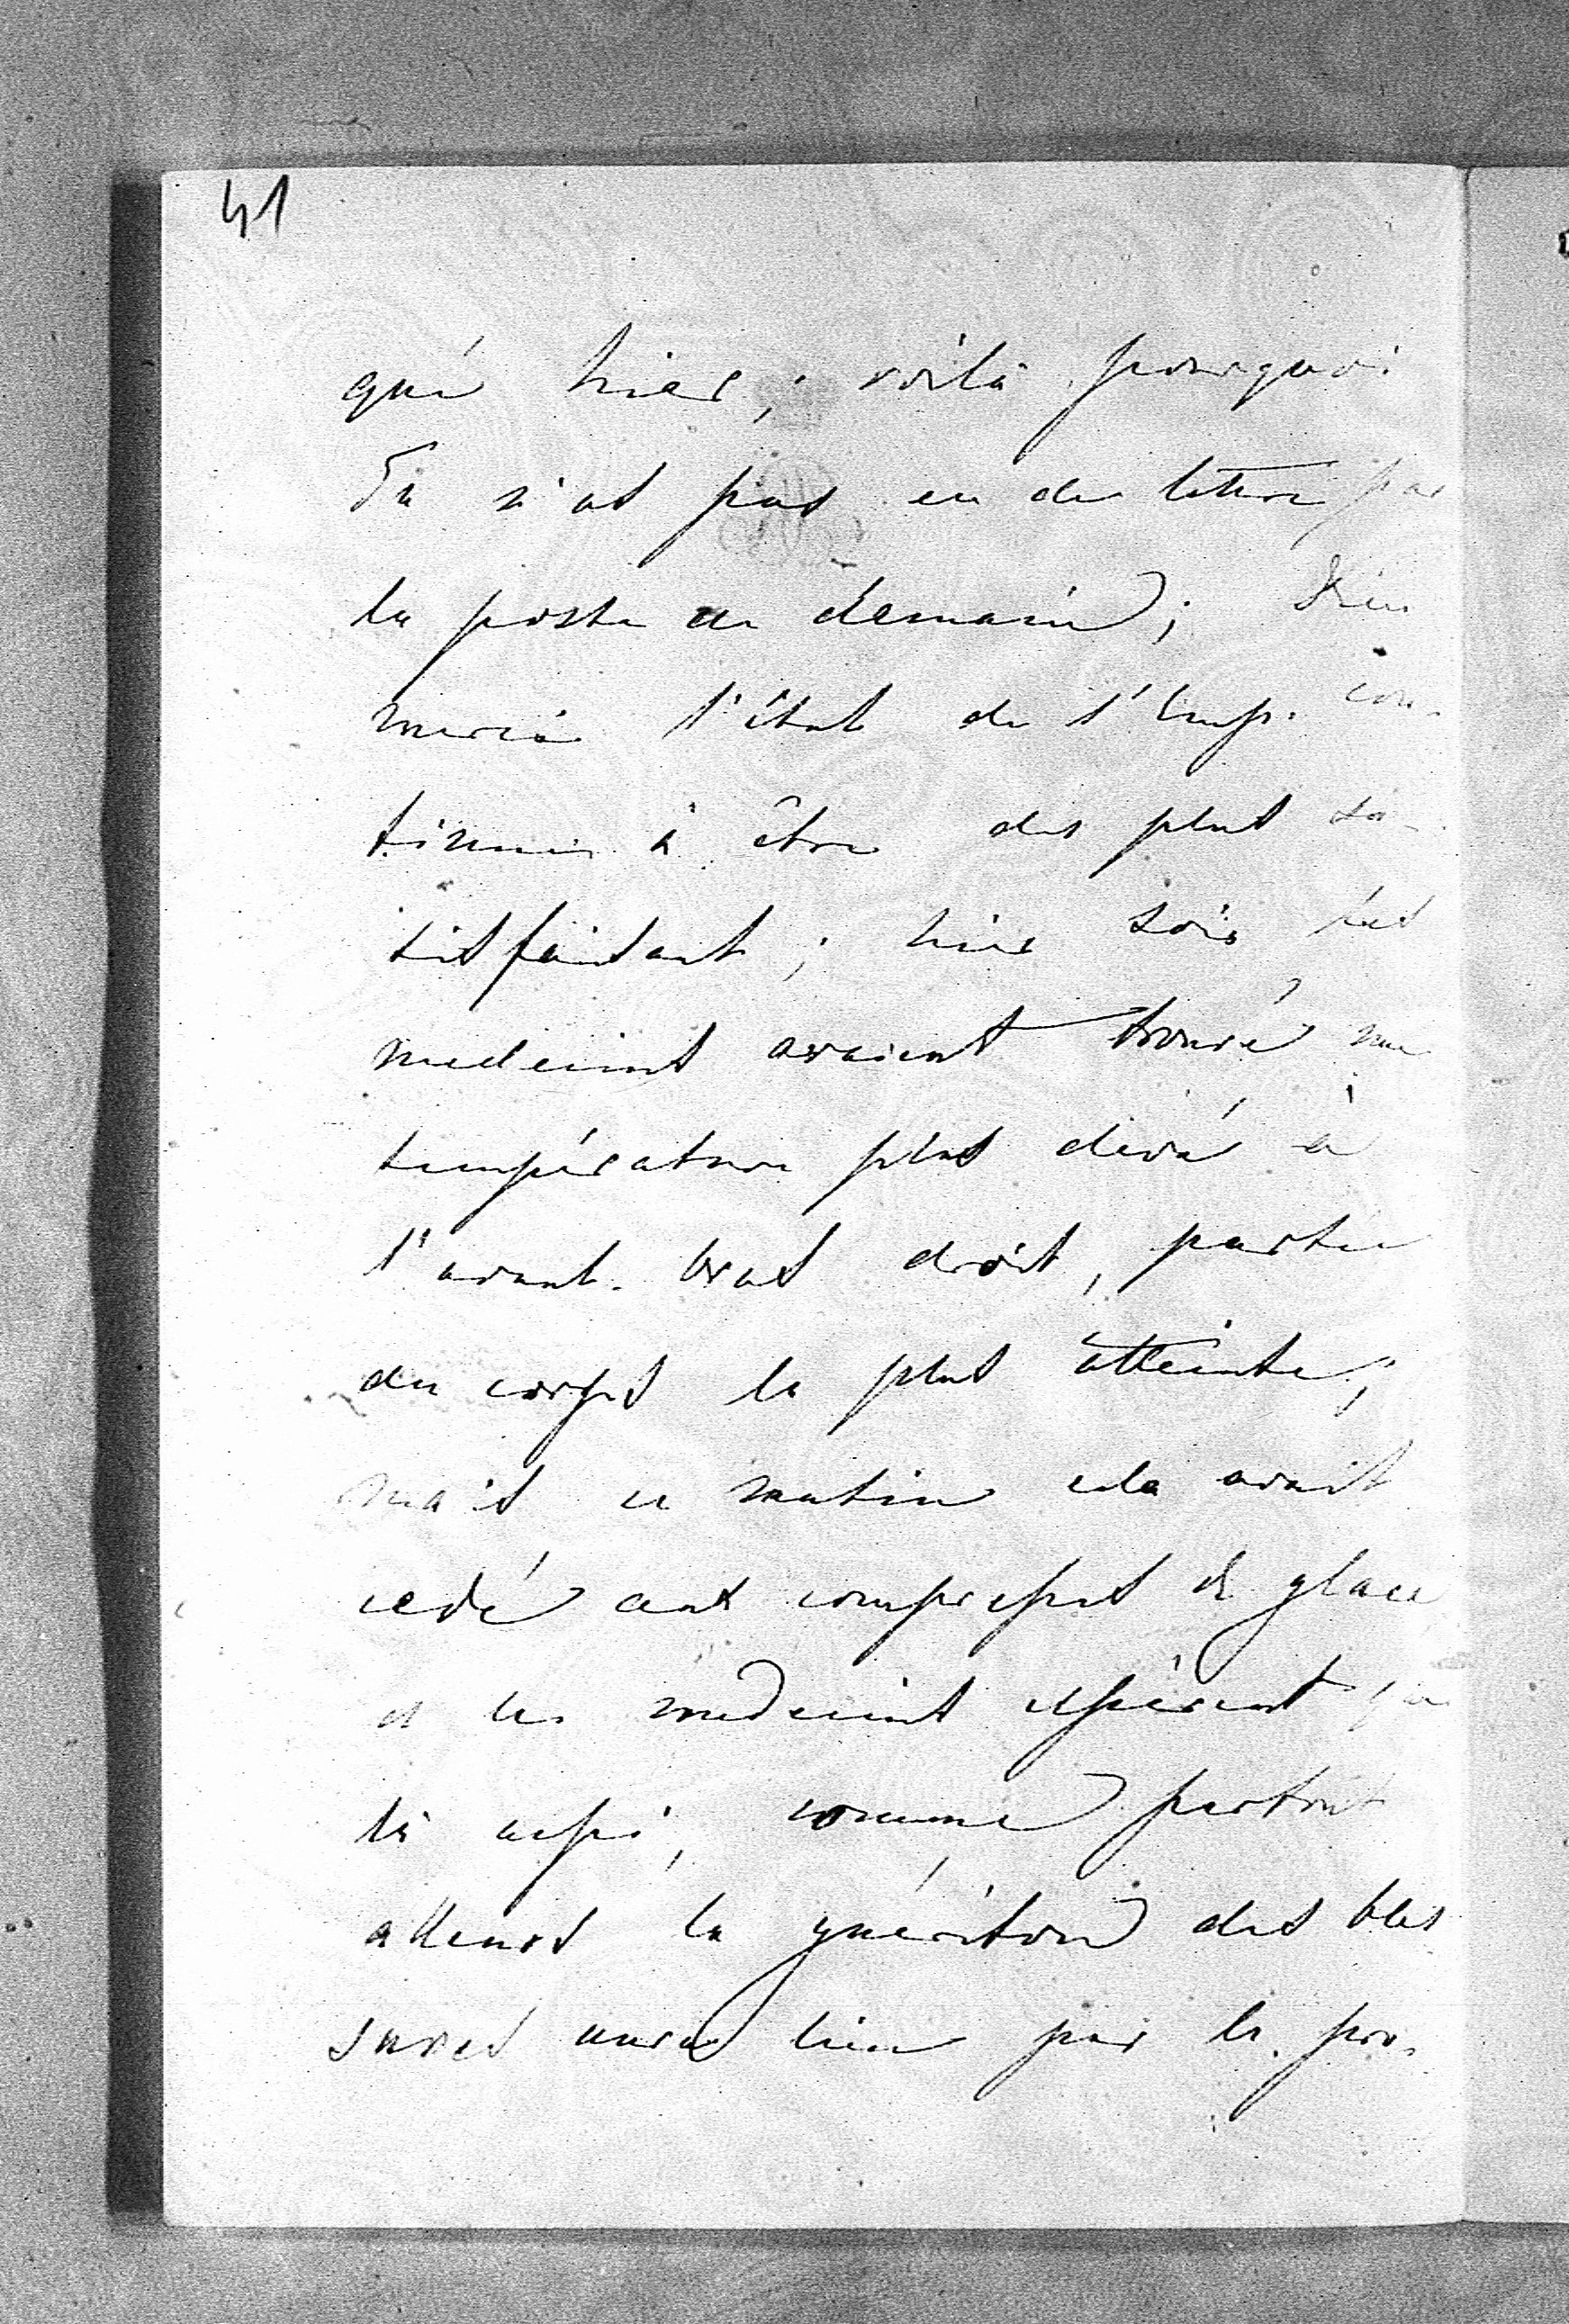 41
qué hier; voilà pourquoi
Tu n'as pas eu de lettre par
la poste de demain; Dieu
merci l'état de l'Emp. con-
tinue à être des plus sa-
tisfaisant; hier soir les
medecins avaient trouvé une
température plus élevé à
l'avant-bras droit, partie
du corps la plus atteinte;
mais ce matin cela avait
cedé aux compresses de glace
et les medecins espèrent que
là aussi, comme partout
ailleurs la guérison des bles
sures aura lieu par le pro-